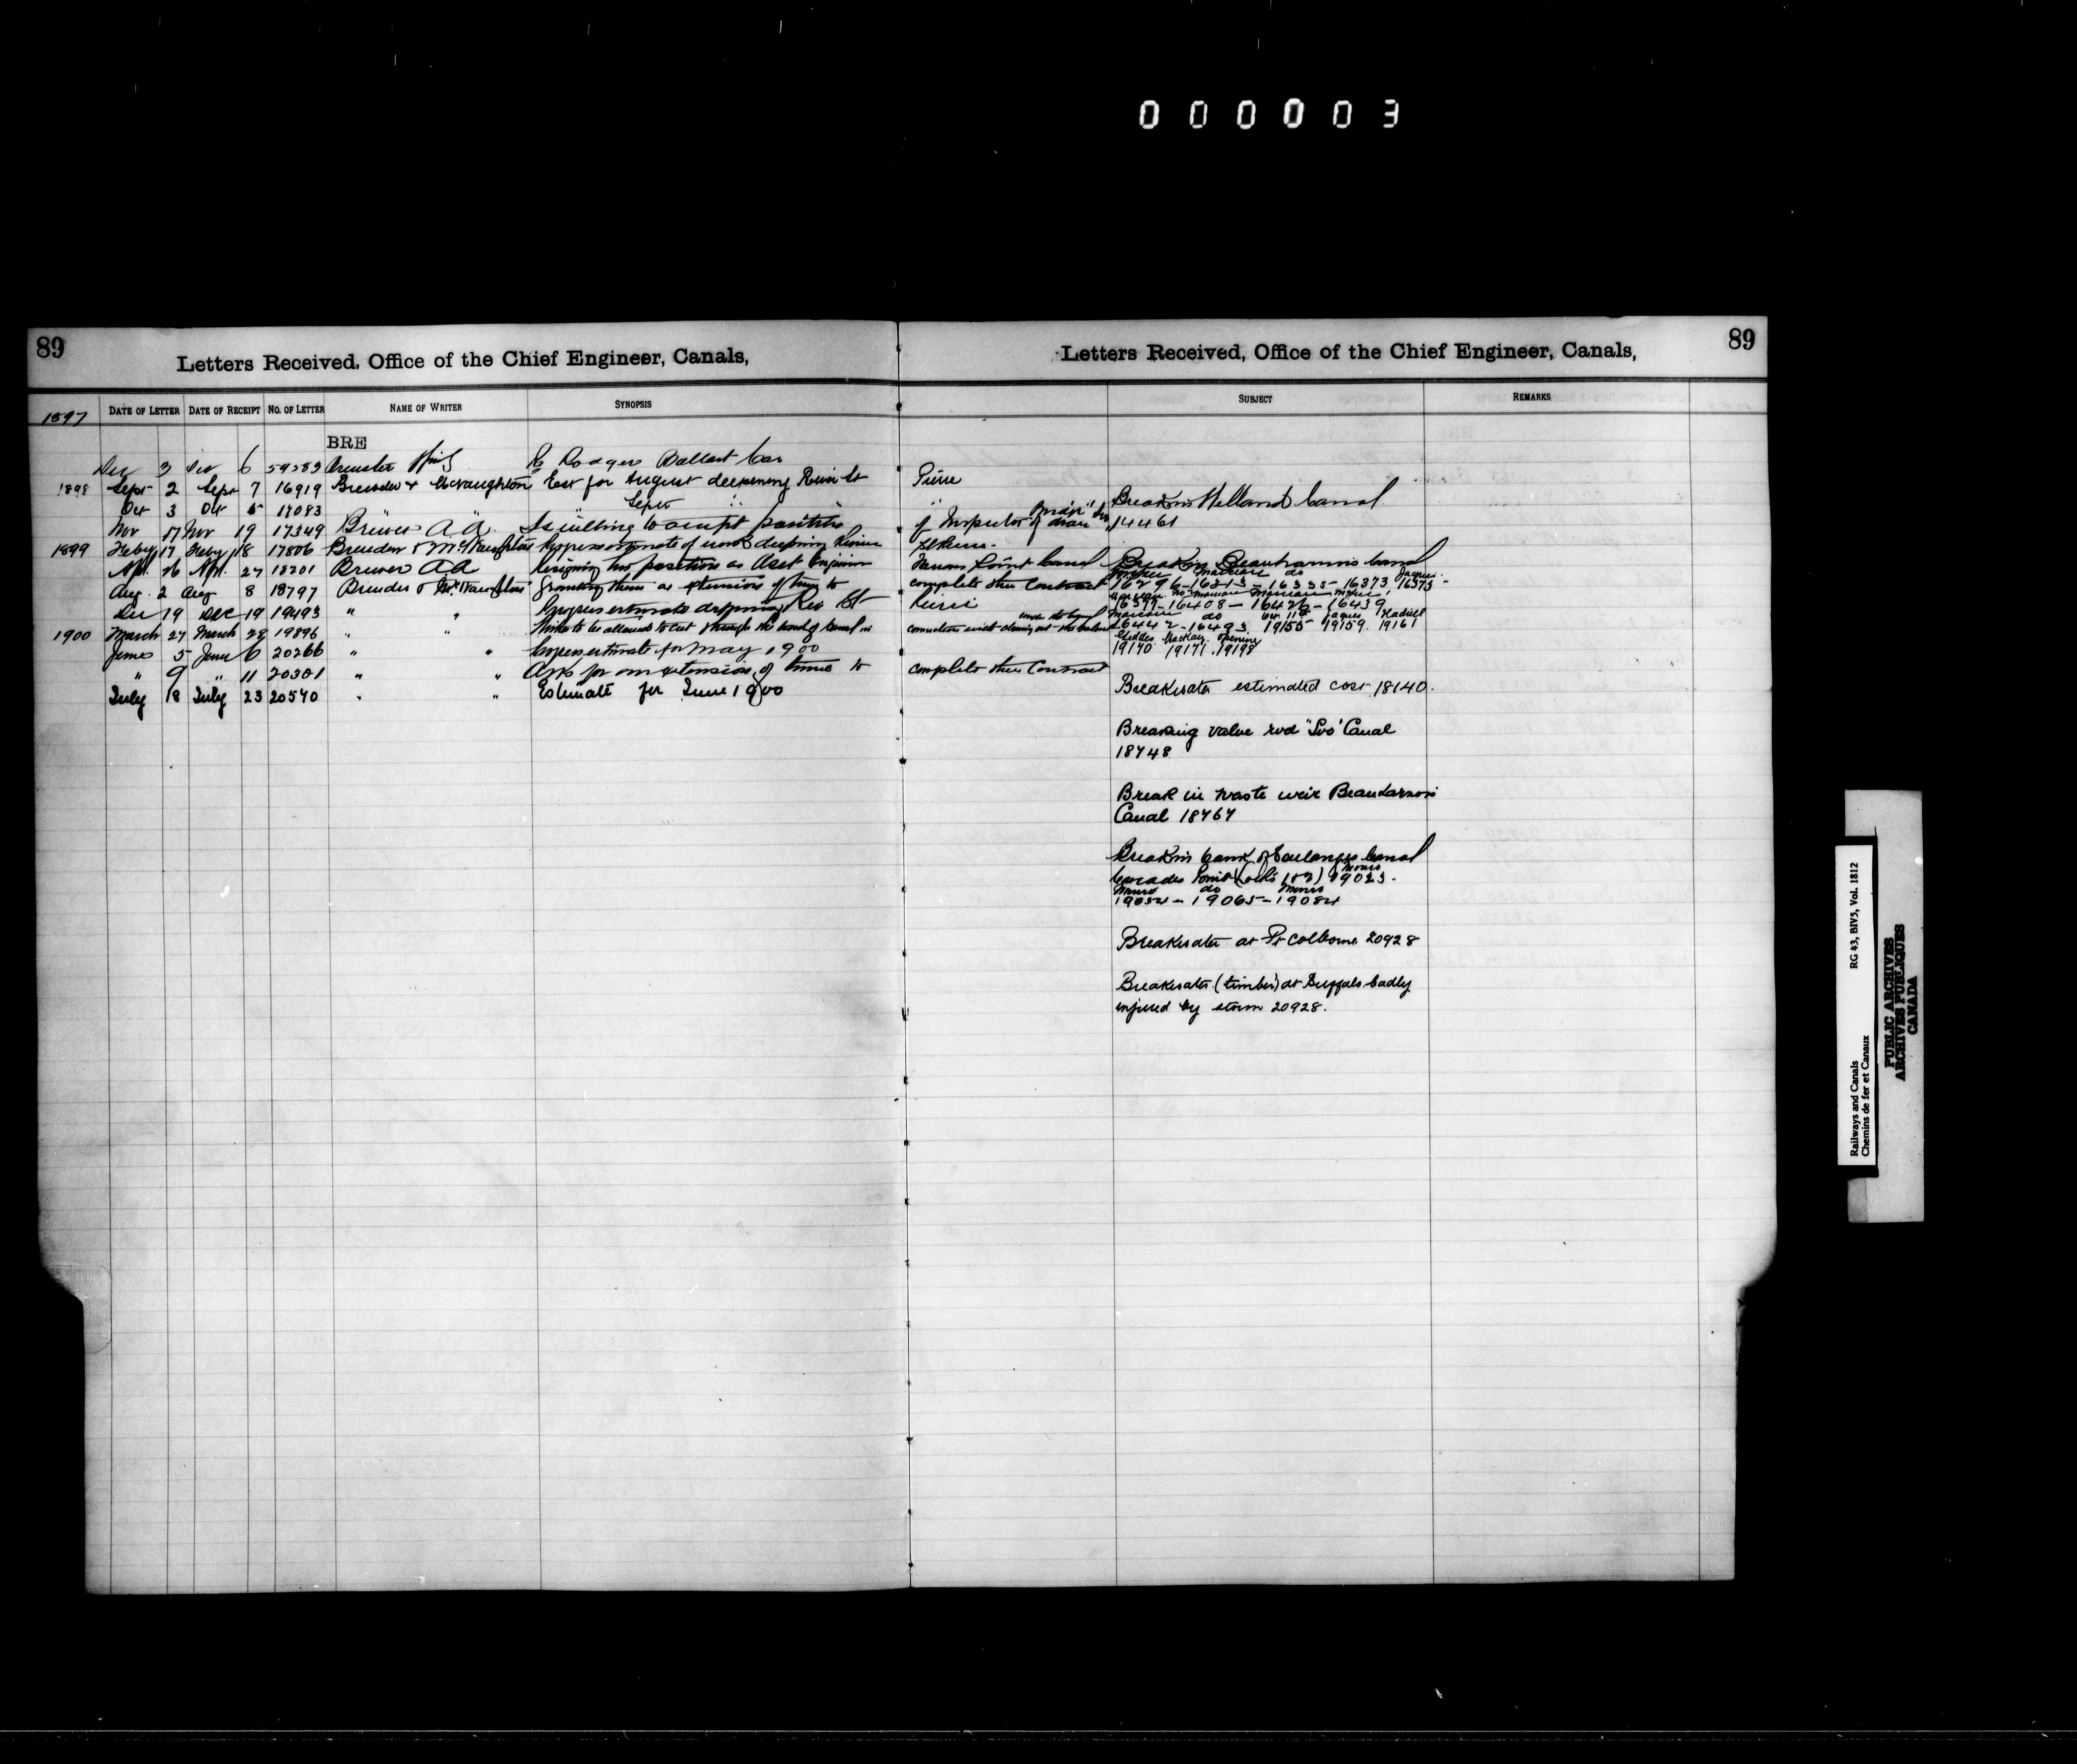 000003
89
Letters Received, Office of the Chief Engineer, Canals,
1897 DATE OF LETTER DATE OF RECEIPT NO. OF LETTER NAME OF WRITER SYNOPSIS
BRE
Dec 3 Dec 6 59583 Brewster Rodgers Ballast Car
1898 Sept 2 Sept 7 16919 Breuder & McNaughton Est for August deepening River St
Oct 3 Oct 5 17083 " Sept "
Nov 17 Nov 19 17349 Brewer A A Is willing to accept position
1899 Feby 17 Feby 18 17806 Breuder & McNaughton Progress estimate of work deepening River
Apl. 26 Apl. 27 18201 Brewer A A Resigning his position as Asst Engineer
Aug 2 Aug 8 18797 Breuder & McNaughton Granting them an extension of time to
Dec 19 Dec 19 19493 " " Progress estimate deepening Riv St
1900 March 27 March 28 19896 " " to be allowed to cut through the of Canal in
June 5 June 6 20266 " " Progress estimate for May 1900
" 9 " 11 20301 " " Asks for an extension of time to
July 18 July 23 20540 " " Estimate for June 1900
89
Letters Received, Office of the Chief Engineer, Canals,
SUBJECT REMARKS
Pierre
of Inspector of
St Pierre
Farrans Point Canal
complete their Contract
Pierre
connection with cleaning out the
complete their Contract
Break in Welland Canal
14461
Break in Beauharnois Canal
16296-16313-16335-16373 16375-
16399-16408-16426-16439
16442-16493 19155 19159. 19161
Geddes Mackay. opening
19170 19171. 19198
Breakwater estimated cost 18140.
Breaking valve rod "Soo" Canal
18748
Break in waste weir Beauharnois
Canal 18767
Break in bank of Soulanges Canal
Cascades Point (Lock 1 & 2) 19023.
Munro do Munro
19054-19065-19084
Breakwater at Pt Colborne 20928
Breakwater (timber) at Buffalo badly
injured by storm 20928.
Railways and Canals RG 43, BIV5, Vol. 1812
Chemins de fer et Canaux
PUBLIC ARCHIVES
ARCHIVES PUBLIQUES
CANADA